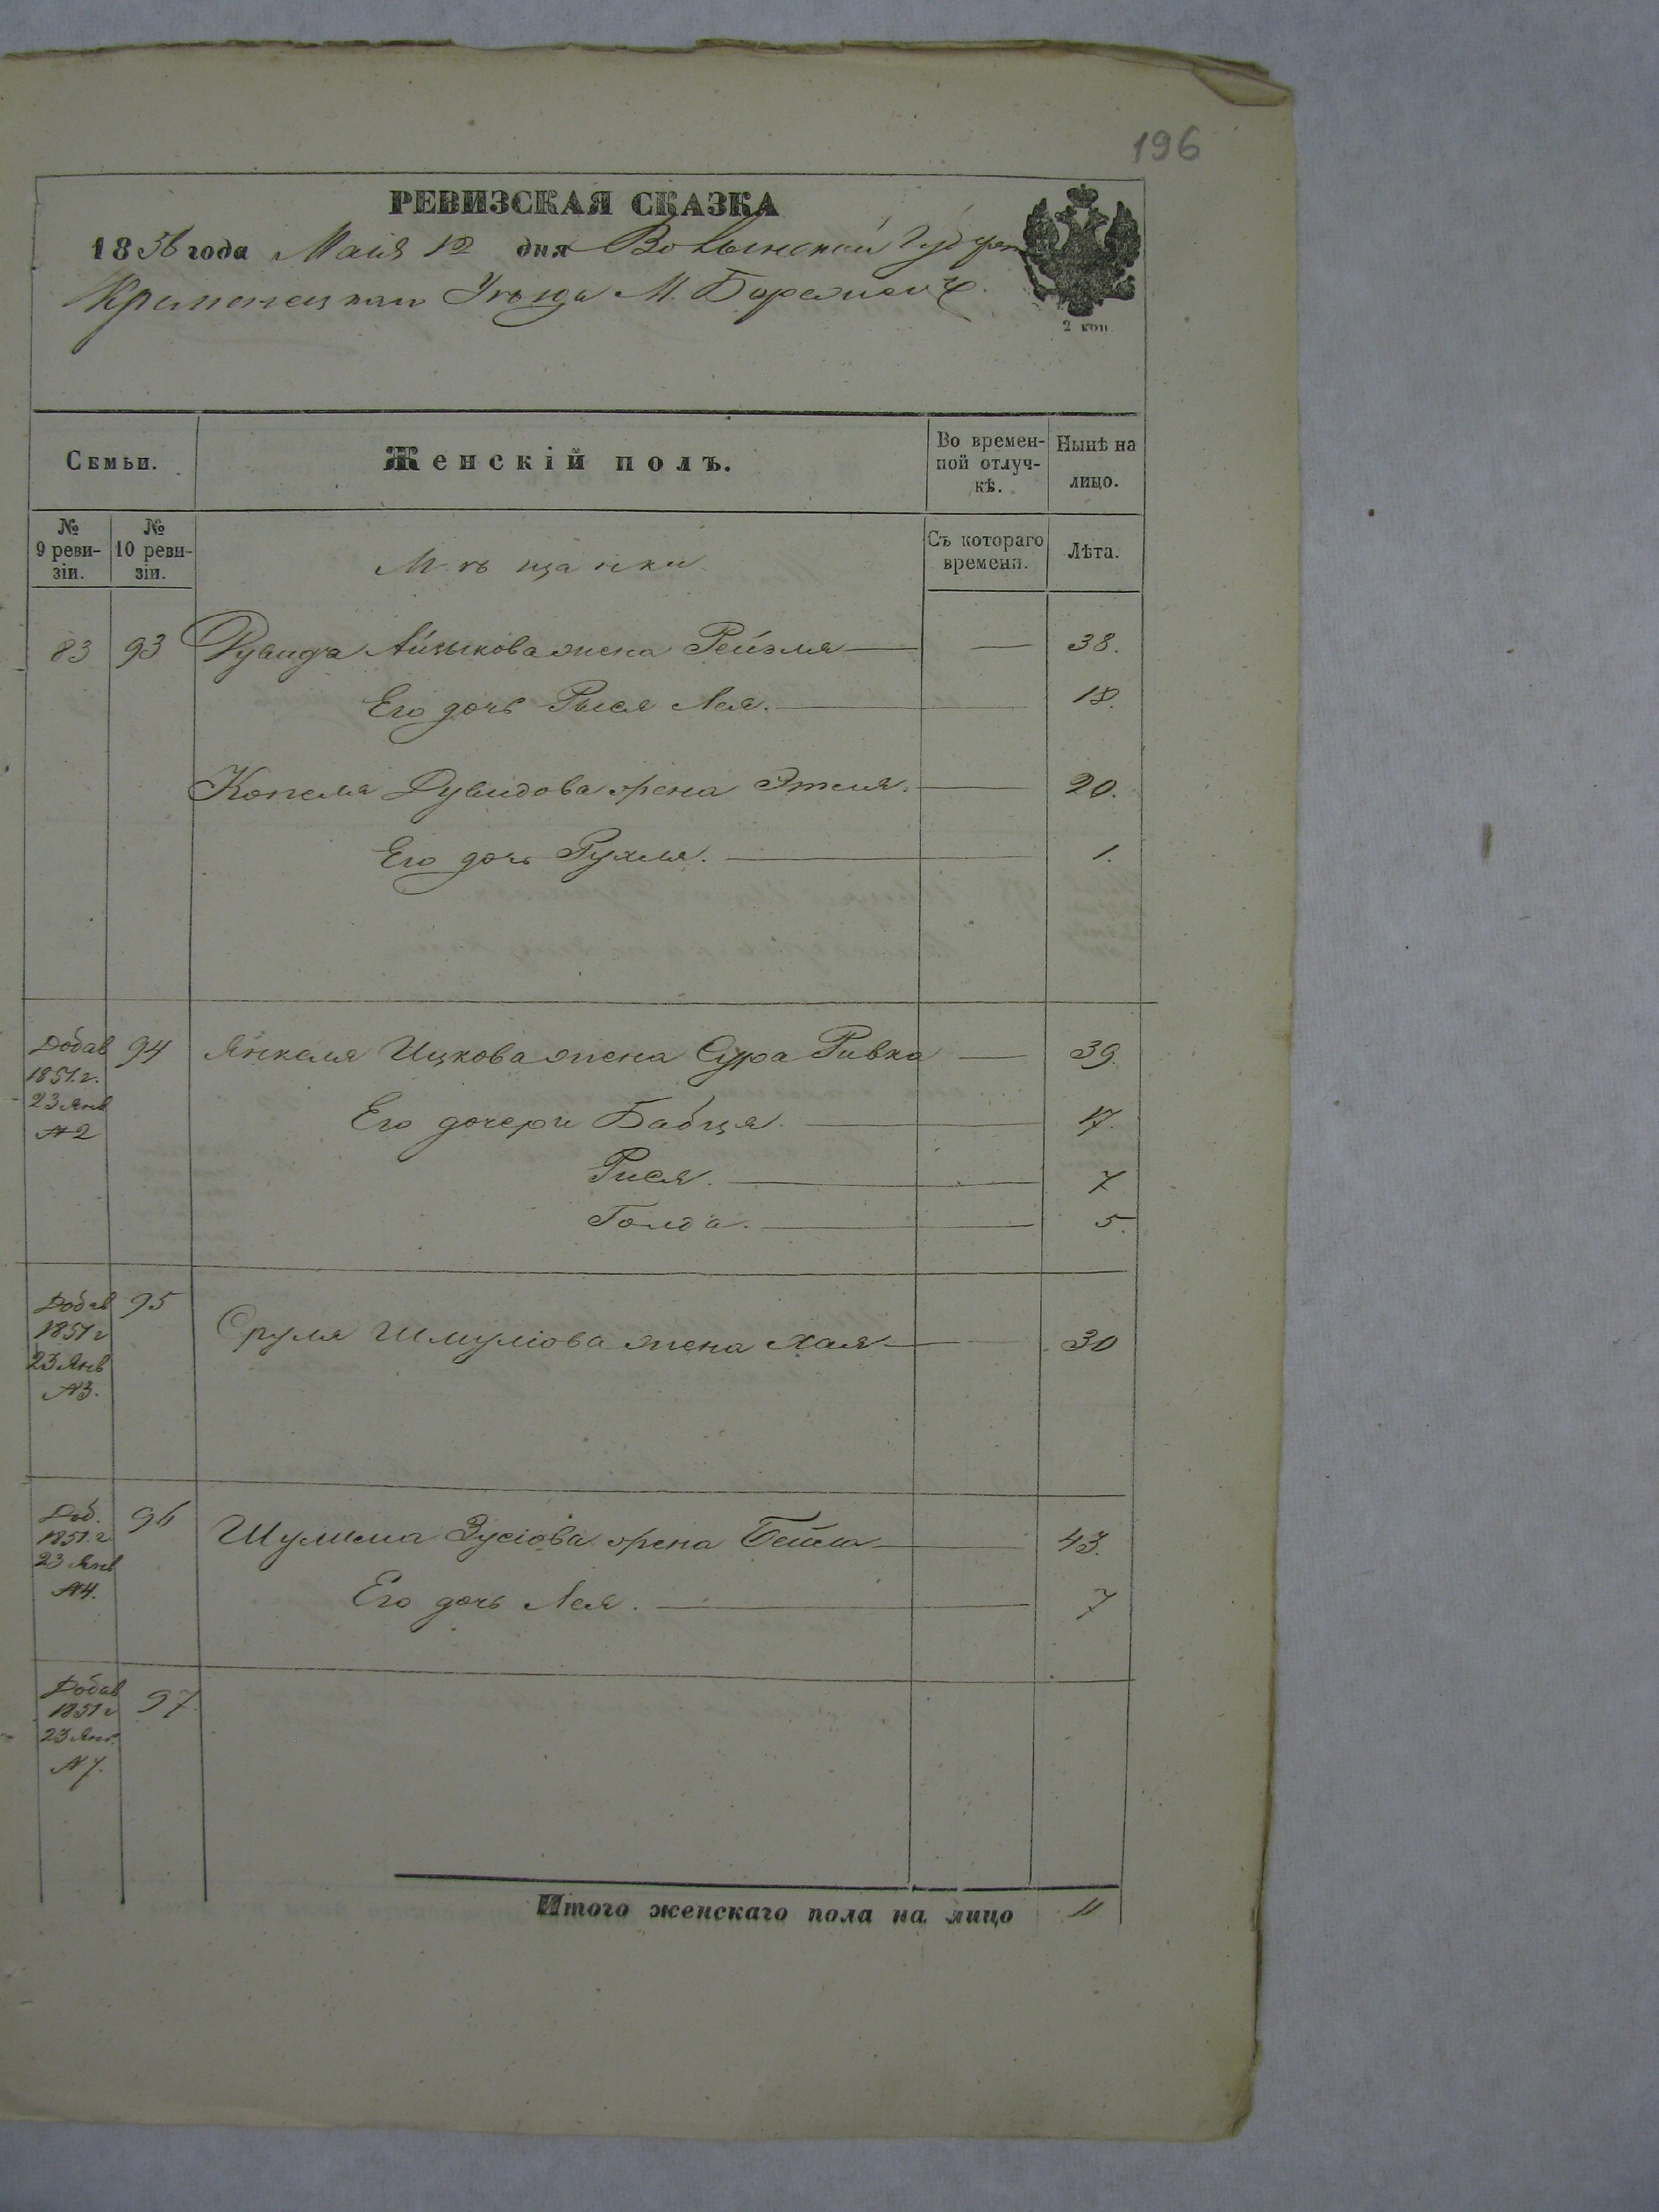 196
РЕВИЗСКАЯ СКАЗКА
1858 года Маія 12 дня Волынской Губерн
Кременецкаго Уѣзда М. Боремель
2 коп.
Семьи.
Женскій полъ.
Во времен-
ной отлуч-
кѣ.
Нынѣ на
лицо.
№
9 реви-
зіи.
№
10 реви-
зіи.
Мѣщанки
Съ котораго
времени.
Лѣта.
83 93 Дувида Айзыкова жена Рейзля — — 38.
Его дочь Рыся Лея. — 18.
Копеля Дувидова жена Этля. — 20.
Его дочь Рухля. — 1.
Добав 94 Янкеля Ицкова жена Сура Ривка — 39.
1851.г.
23 Янв
№2
Его дочери Бабця. — 17.
Рися. — 7
Голда. — 5.
Добав 95
1851 г
23 Янв
№3.
Сруля Шмулiова жена Хая — 30
Доб. 96
1851.г
23 Янв
№4.
Шулима Зусiова жена Бейла — 43.
Его дочь Лея. — 7
Добав 97.
1851 г
23 Янв.
№7.
Итого женскаго пола на лицо 11